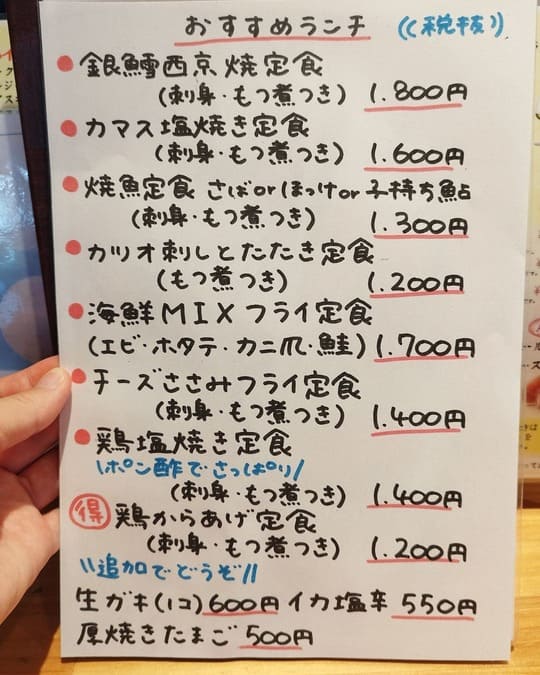 おすすめランチ ((税抜))
● 銀鱈西京焼定食
(刺身・もつ煮つき) 1.800円
● カマス塩焼き定食
(刺身・もつ煮つき) 1.600円
● 焼魚定食 さばorほっけor子持ち鮎
(刺身・もつ煮つき) 1.300円
● カツオ刺しとたたき定食
(もつ煮つき) 1.200円
● 海鮮MIXフライ定食
(エビ・ホタテ・カニ爪・鮭) 1.700円
● チーズささみフライ定食
(刺身・もつ煮つき) 1.400円
● 鶏塩焼き定食
\ポン酢でさっぱり/
(刺身・もつ煮つき) 1.400円
得 鶏からあげ定食
(刺身・もつ煮つき) 1.200円
\\追加でどうぞ//
生ガキ(1コ) 600円 イカ塩辛 550円
厚焼きたまご 500円